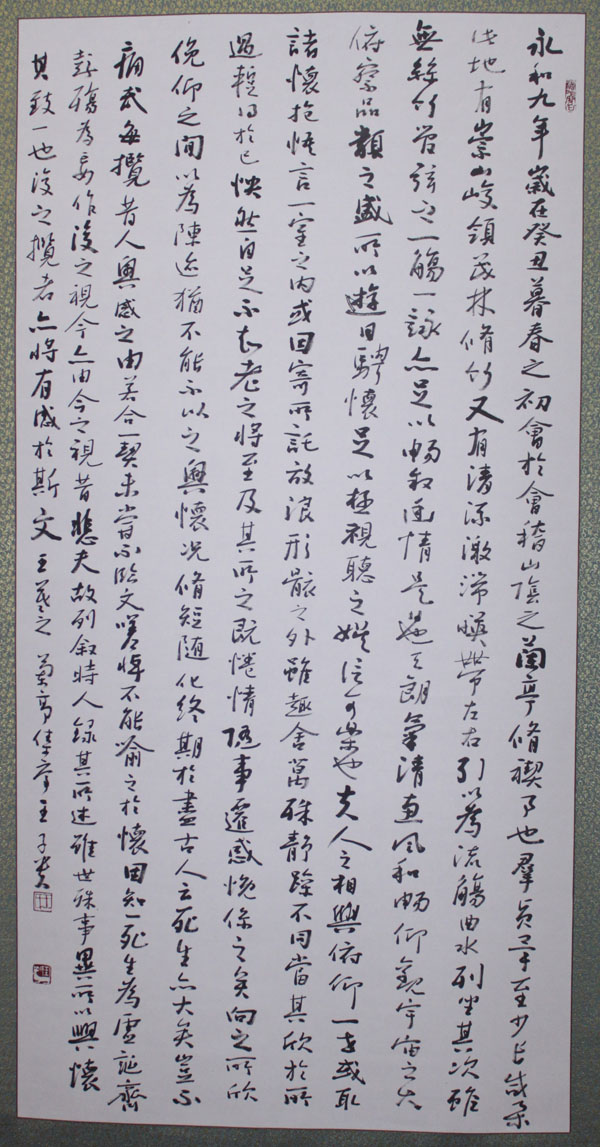 永和九年歲在癸丑暮春之初會於會稽山陰之蘭亭脩禊事也羣賢畢至少長咸集
此地有崇山峻領茂林脩竹又有清流激湍暎帶左右引以為流觴曲水列坐其次雖
無絲竹管弦之一觴一詠亦足以暢敘幽情是日也天朗氣清惠風和暢仰觀宇宙之大
俯察品類之盛所以遊目騁懷足以極視聽之娛信可樂也夫人之相與俯仰一世或取
諸懷抱悟言一室之內或因寄所託放浪形骸之外雖趣舍萬殊靜躁不同當其欣於所
遇暫得於己怏然自足不知老之將至及其所之既惓情隨事遷感慨係之矣向之所欣
俛仰之間以為陳迹猶不能不以之興懷況脩短隨化終期於盡古人云死生亦大矣豈不
痛哉每攬昔人興感之由若合一契未嘗不臨文嗟悼不能喻之於懷固知一死生為虛誕齊
彭殤為妄作後之視今亦由今之視昔悲夫故列敘時人錄其所述雖世殊事異所以興懷
其致一也後之攬者亦將有感於斯文 王羲之 蘭亭集序 王子